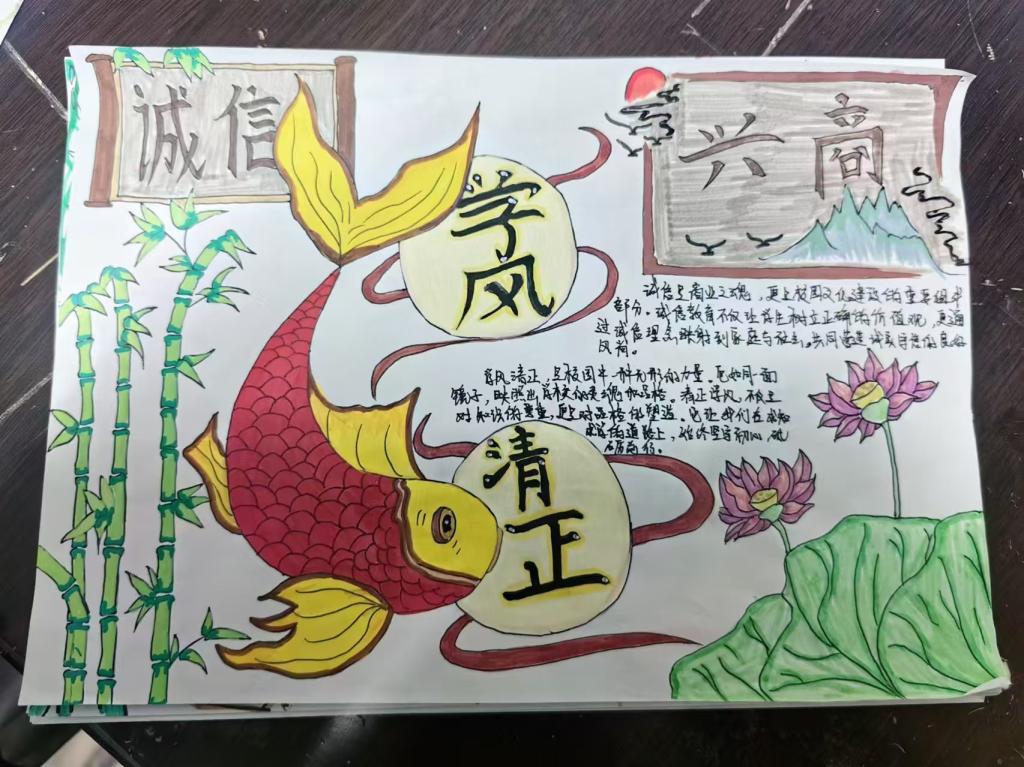 诚信
兴商
学风
清正
诚信是商业之魂，更是校园文化建设的重要组成
部分。诚信教育不仅让学生树立正确的价值观，更通
过诚信理念映射到家庭与社会。共同营造诚实守信的良好
风尚。
学风清正，是校园中一种无形的力量。它如同一面
镜子，映照出学校的灵魂和品格。清正学风，不仅是
对知识的尊重，更是对品格的塑造。它让我们在
的道路上，始终坚守初心，砥
砺前行。